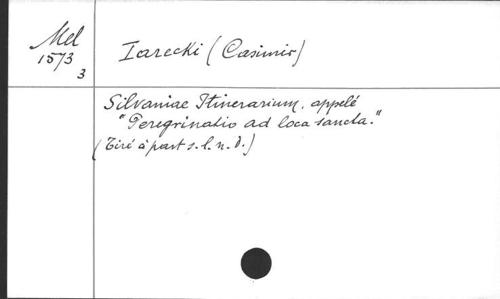 Mel
1573
3
Iarecki (Casimir)
Silvaniae Itinerarium, appelé
"Peregrinatio ad loca sancta."
(Tiré à part s.l.n.d.)